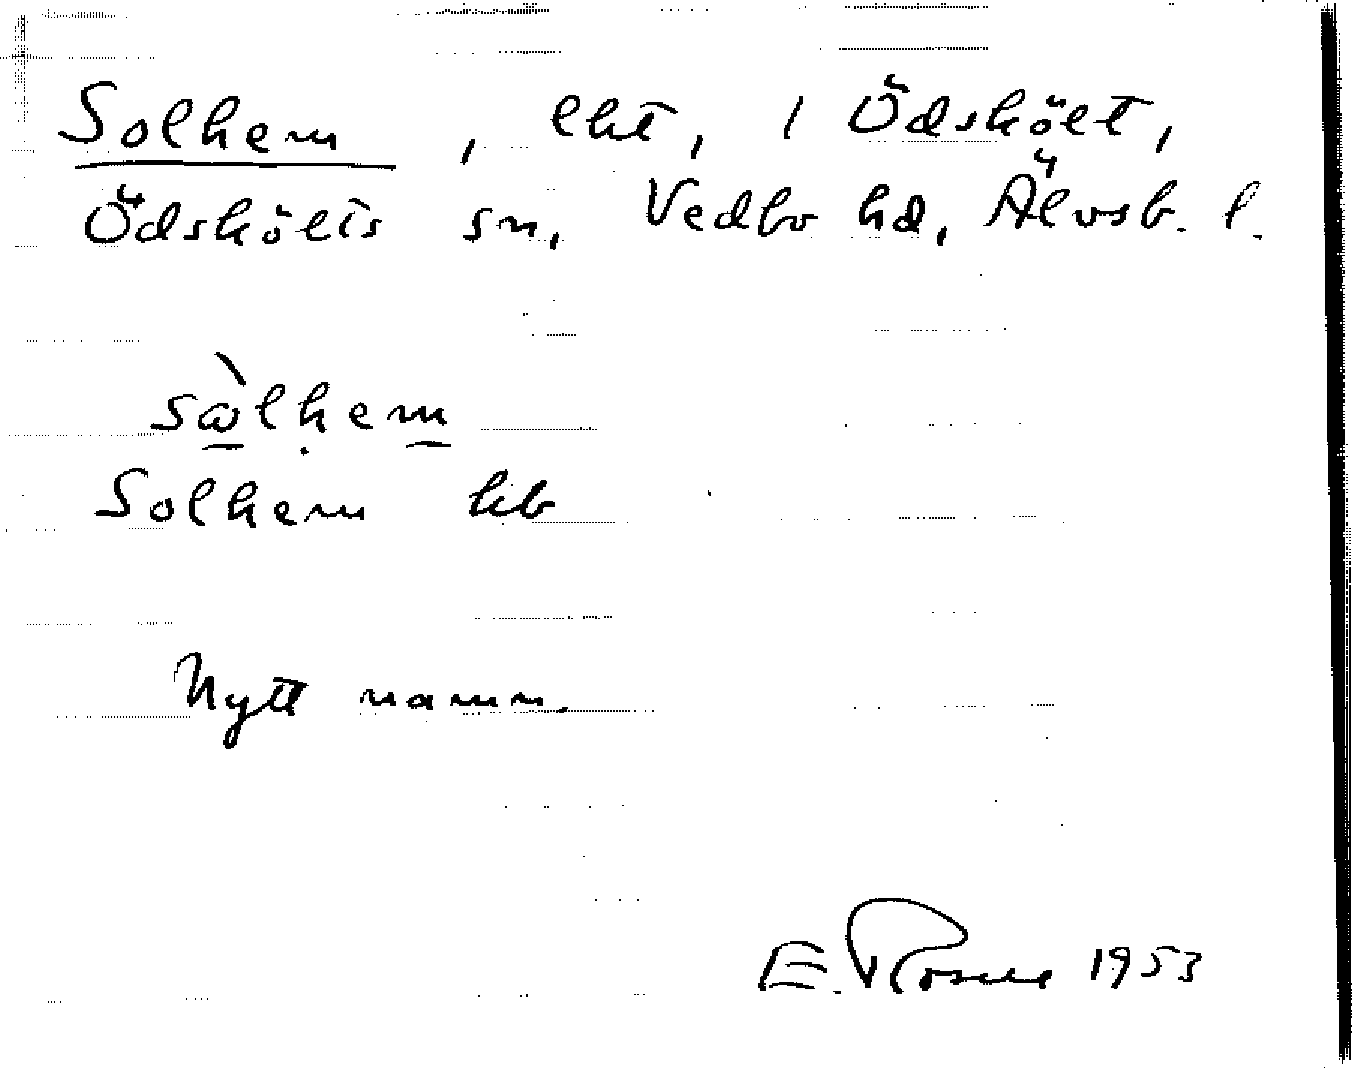 Solhem, lht, i Ödskölt,
Ödskölts sn, Vedbo hd, Älvsb. l.
sòlhem
Solhem kb
Nytt namn.
E. 1953